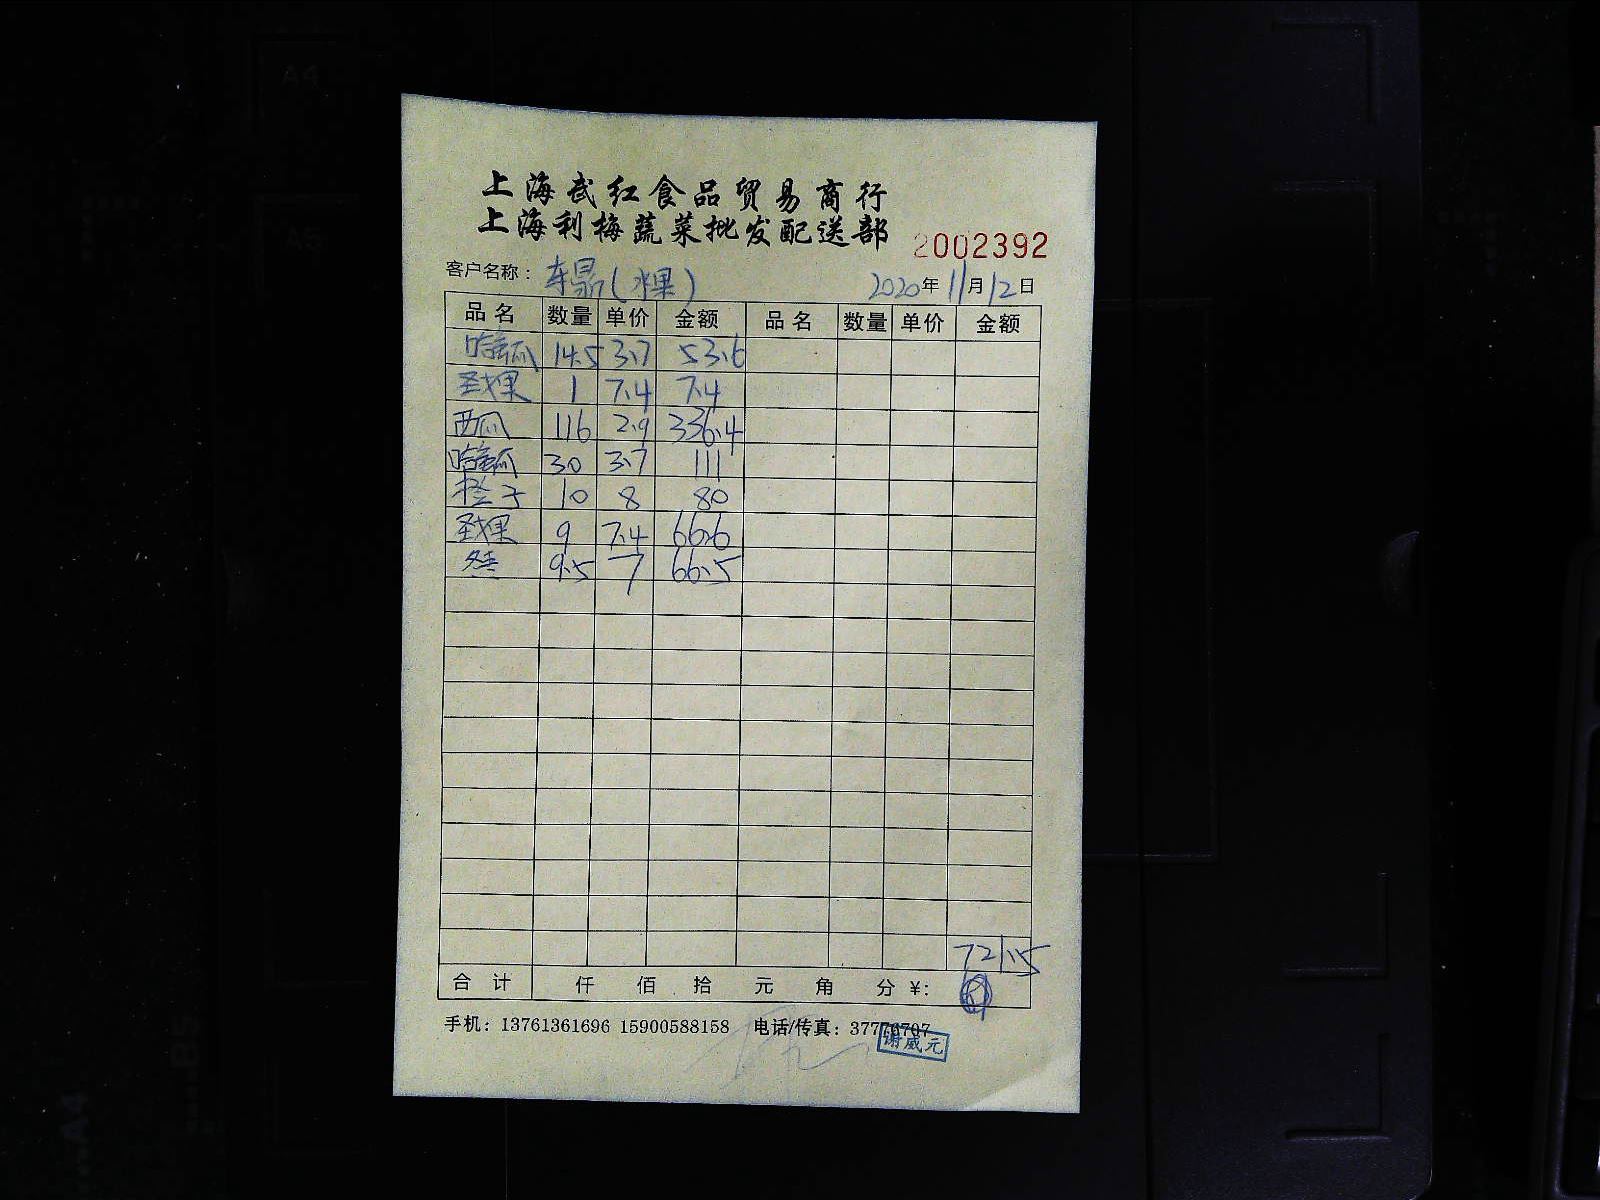 上海武红食品贸易商行
上海利梅蔬菜批发配送部
2002392
客户名称：车鼎(水果) 2020年11月12日
品名 数量 单价 金额 品名 数量 单价 金额
哈密瓜 14.5 3.7 53.6
圣女果 1 7.4 7.4
西瓜 116 2.9 336.4
哈密瓜 30 3.7 111
橙子 10 8 80
圣女果 9 7.4 66.6
冬枣 9.5 7 66.5
721.5
合计 仟 佰 拾 元 角 分 ¥:
手机：13761361696 15900588158 电话/传真：37770707
谢威元
A4
A5
B5
A4